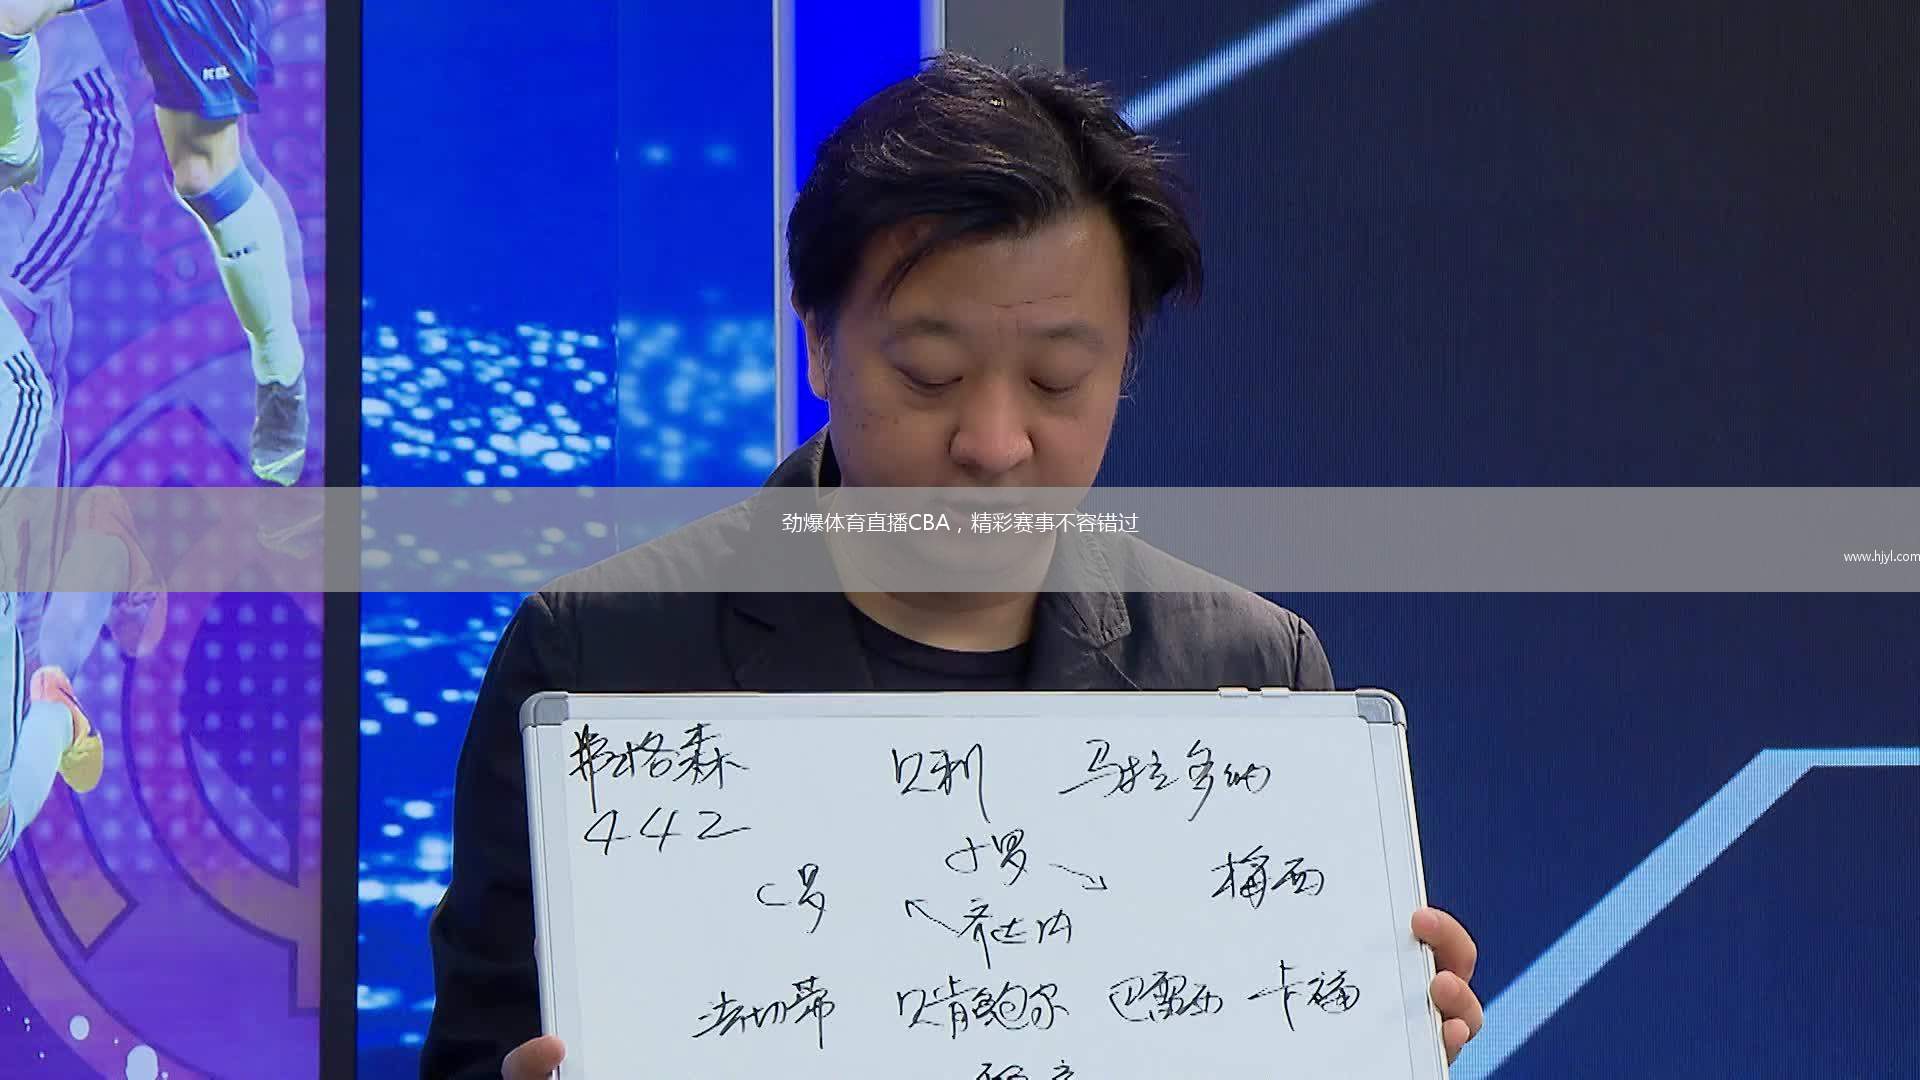 劲爆体育直播CBA，精彩赛事不容错过
www.hjyl.com
弗格森 贝利 马拉多纳
442
小罗
C罗 梅西
齐达内
法切蒂 贝肯鲍尔 巴雷西 卡福